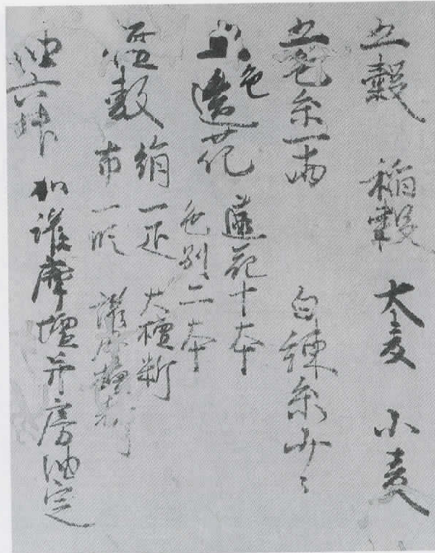 五穀 稲穀 大麦 小麦
五色糸一両 白練糸少〻
五色造花 蓮花十本
色別二本
壇敷 絹一疋 大壇料
布一段 護摩壇料
油六升 加護摩壇并房油定